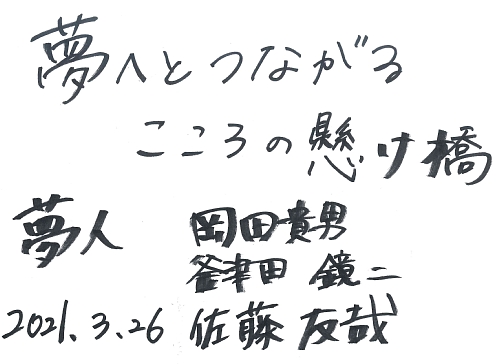 夢へとつながる
こころの懸け橋
夢人 岡田貴男
釜津田 鏡二
2021.3.26 佐藤 友哉